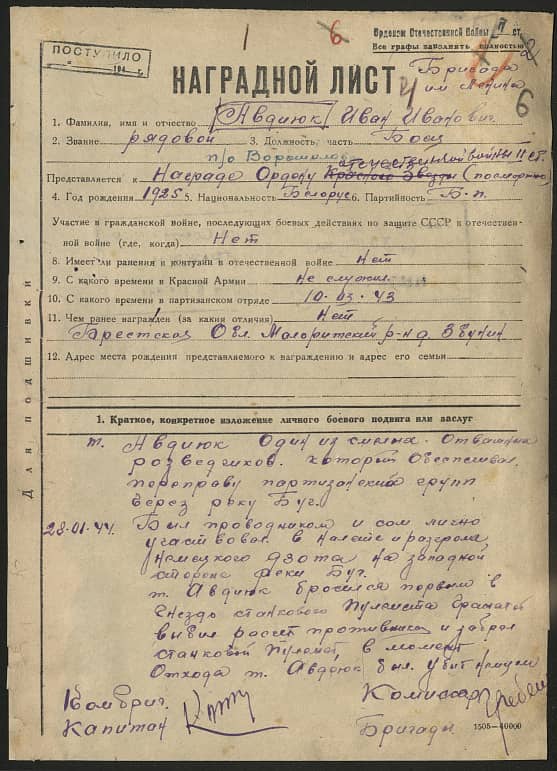 1 6 Орденом Отечественной Войны II ст.
ПОСТУПИЛО
Все графы заполнять полностью
2
194 г.
НАГРАДНОЙ ЛИСТ
Бригада
им Ленина
6
1. Фамилия, имя и отчество Авдиюк Иван Иванович.
2. Звание рядовой 3. Должность, часть Боец
п/о Ворошилова отечественной войны II ст.
Представляется к Награде Ордену Красного Звезды (посмертно)
4. Год рождения 1925 5. Национальность Белорус 6. Партийность Б-п.
Участие в гражданской войне, последующих боевых действиях по защите СССР и отечествен-
ной войне (где, когда) Нет
8. Имеет ли ранения и контузии в отечественной войне Нет
9. С какого времени в Красной Армии не служил
10. С какого времени в партизанском отряде 10-03-43
11. Чем ранее награжден (за какия отличия) Нет
Брестская Обл. Малоритский р-н д.
12. Адрес места рождения представляемого к награждению и адрес его семьи
Для подшивки
1. Краткое, конкретное изложение личного боевого подвига или заслуг
т. Авдиюк Один из смелых. Отважных
розведчиков. который Обеспечивал
переправу партизанских групп
Через реку Буг.
28-01-44. Был проводником и сом лично
участвовал в налете и разгроме
немецкого дзота на западной
стороне реки Буг.
т. Авдиюк бросился первым в
Гнездо станкового Пулемета Гранатой
выбил расчет противника и забрал
станковый Пулемет, в момент
Отхода т. Авдиюк был убит немцем
Комбриг. Комиссар
Капитан Бригады
1505—40000